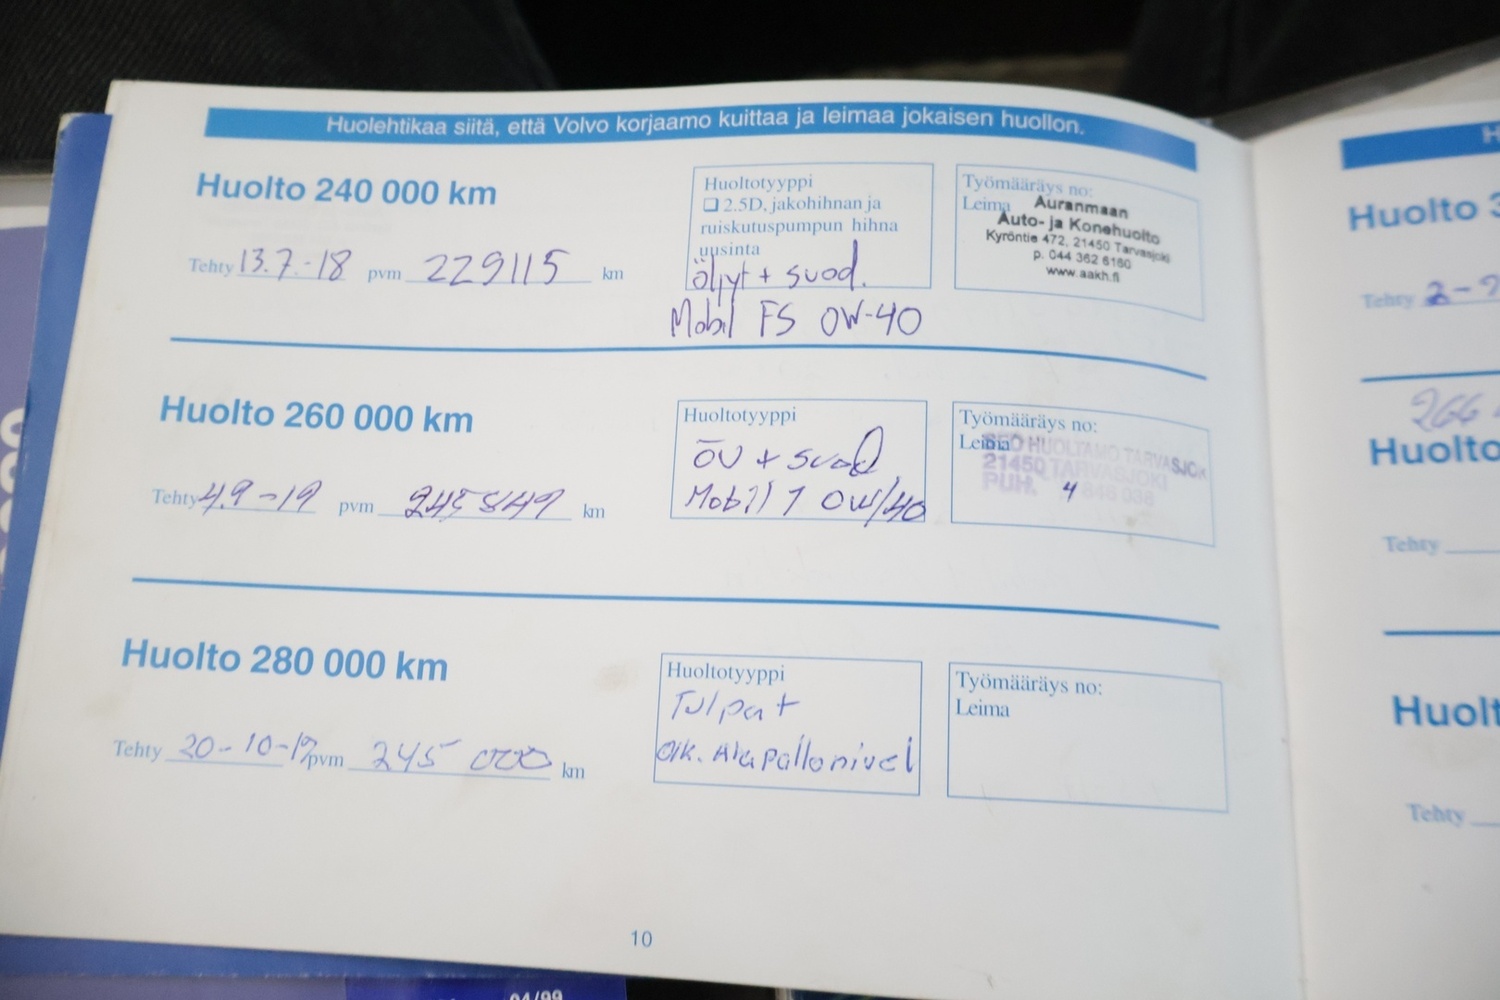 Huolehtikaa siitä, että Volvo korjaamo kuittaa ja leimaa jokaisen huollon.
Huolto 240 000 km
Tehty 13.7.-18 pvm 229115 km
Huoltotyyppi
❑ 2.5D, jakohihnan ja
ruiskutuspumpun hihna
uusinta
öljyt + suod.
Mobil FS 0W-40
Työmääräys no:
Leima
Auranmaan
Auto- ja Konehuolto
Kyröntie 472, 21450 Tarvasjoki
p. 044 362 6160
www.aakh.fi
Huolto 260 000 km
Tehty 4.9-19 pvm 245849 km
Huoltotyyppi
ÖV + suod
Mobil 1 0W/40
Työmääräys no:
Leima
SEO HUOLTAMO TARVASJOKI
21450 TARVASJOKI
PUH.
Huolto 280 000 km
Tehty 20-10-19 pvm 245 000 km
Huoltotyyppi
Tulpat
oik. Alapallonivel
Työmääräys no:
Leima
10
04/99
H
Huolto 3
Tehty 2-
266
Huolto
Tehty
Huolt
Tehty